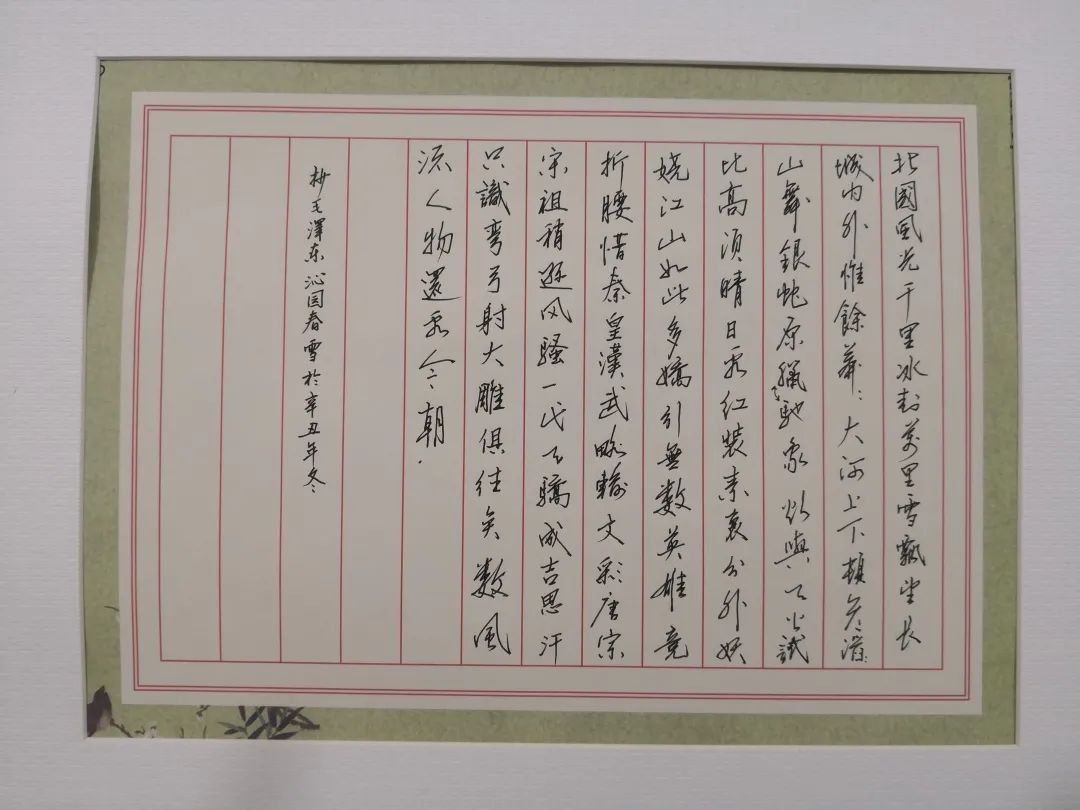 北國風光千里冰封萬里雪飄望長
城内外惟餘莽〻大河上下頓失滔〻
山舞銀蛇原臘馳象欲與天公試
比高須晴日看红裝素裹分外妖
娆江山如此多嬌引無数英雄竞
折腰惜秦皇漢武略輸文彩唐宗
宋祖稍遜风騷一代天驕成吉思汗
只識彎弓射大雕俱往矣数風
流人物還看今朝.
抄毛澤东沁园春雪於辛丑年冬